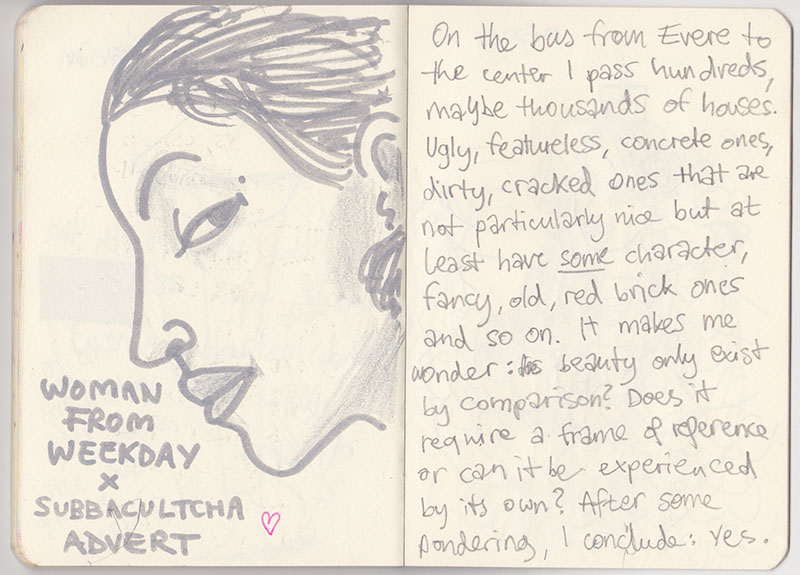 WOMAN
FROM
WEEKDAY
x
SUBBACULTCHA
ADVERT
On the bus from Evere to
the center I pass hundreds,
maybe thousands of houses.
Ugly, featureless, concrete ones,
dirty, cracked ones that are
not particularly nice but at
least have some character,
fancy, old, red brick ones
and so on. It makes me
wonder: beauty only exist
by comparison? Does it
require a frame of reference
or can it be experienced
by its own? After some
pondering, I conclude: Yes.